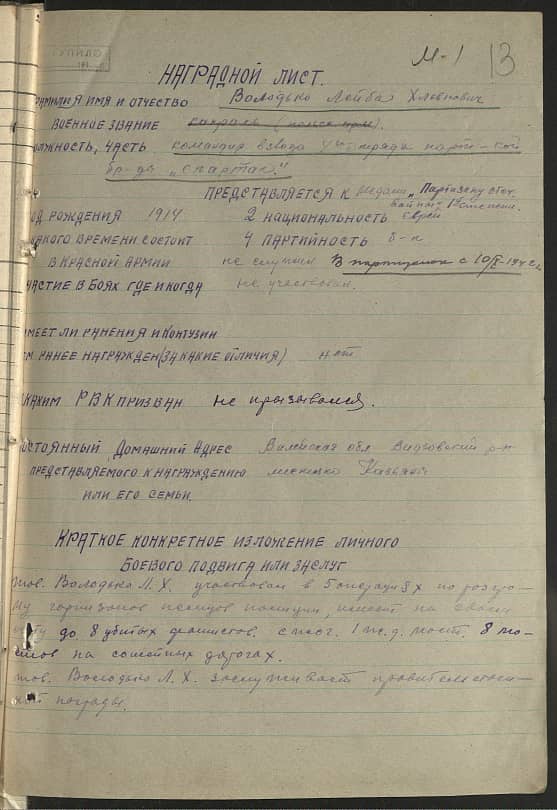 М-1 13
НАГРАДНОЙ ЛИСТ.
ФАМИЛИЯ ИМЯ И ОТЧЕСТВО Володько Лейба Хлавнович
ВОЕННОЕ ЗВАНИЕ
ДОЛЖНОСТЬ, ЧАСТЬ командир взвода отряда парти-кой
бр-ды „Спартак"
ПРЕДСТАВЛЯЕТСЯ К медали „Партизану отеч
войны" 1 степени.
ГОД РОЖДЕНИЯ 1914 2 НАЦИОНАЛЬНОСТЬ еврей
КАКОГО ВРЕМЕНИ СОСТОИТ 4 ПАРТИЙНОСТЬ б-п
В КРАСНОЙ АРМИИ не служил В партизанах с 10/
УЧАСТИЕ В БОЯХ ГДЕ И КОГДА не участвовал.
ИМЕЕТ ЛИ РАНЕНИЯ И КОНТУЗИИ
ЧЕМ РАНЕЕ НАГРАЖДЕН (ЗА КАКИЕ ОТЛИЧИЯ) нет
КАКИМ РВК ПРИЗВАН не призывался.
ПОСТОЯННЫЙ ДОМАШНИЙ АДРЕС Вилейская обл Видзовский р-н
ПРЕДСТАВЛЯЕМОГО К НАГРАЖДЕНИЮ местечко Казьяны
ИЛИ ЕГО СЕМЬИ
КРАТКОЕ КОНКРЕТНОЕ ИЗЛОЖЕНИЕ ЛИЧНОГО
БОЕВОГО ПОДВИГА ИЛИ ЗАСЛУГ
тов. Володько Л. Х. участвовал в 5 операциях по разгро-
му гарнизонов немцев полиции, имеет на своем
счету до 8 убитых фашистов. сжег. 1 ж.д. мост. 8 мо-
стов на шоссейных дорогах.
тов. Володько Л. Х. заслуживает правительствен-
ной награды.